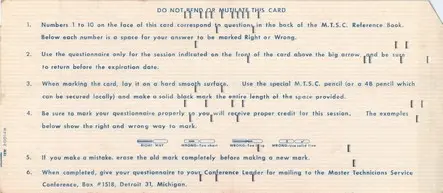 DO NOT BEND OR MUTILATE THIS CARD
1. Numbers 1 to 10 on the face of this card correspond to questions in the back of the M.T.S.C. Reference Book.
Below each number is a space for your answer to be marked Right or Wrong.
2. Use the questionnaire only for the session indicated on the front of the card above the big arrow, and be sure
to return before the expiration date.
3. When marking the card, lay it on a hard smooth surface. Use the special M.T.S.C. pencil (or a 4B pencil which
can be secured locally) and make a solid black mark the entire length of the space provided.
4. Be sure to mark your questionnaire properly so you will receive proper credit for this session. The examples
below show the right and wrong way to mark.
RIGHT WAY WRONG-Too short WRONG-Too long WRONG-Outside line
5. If you make a mistake, erase the old mark completely before making a new mark.
6. When completed, give your questionnaire to your Conference Leader for mailing to the Master Technicians Service
Conference, Box #1518, Detroit 31, Michigan.